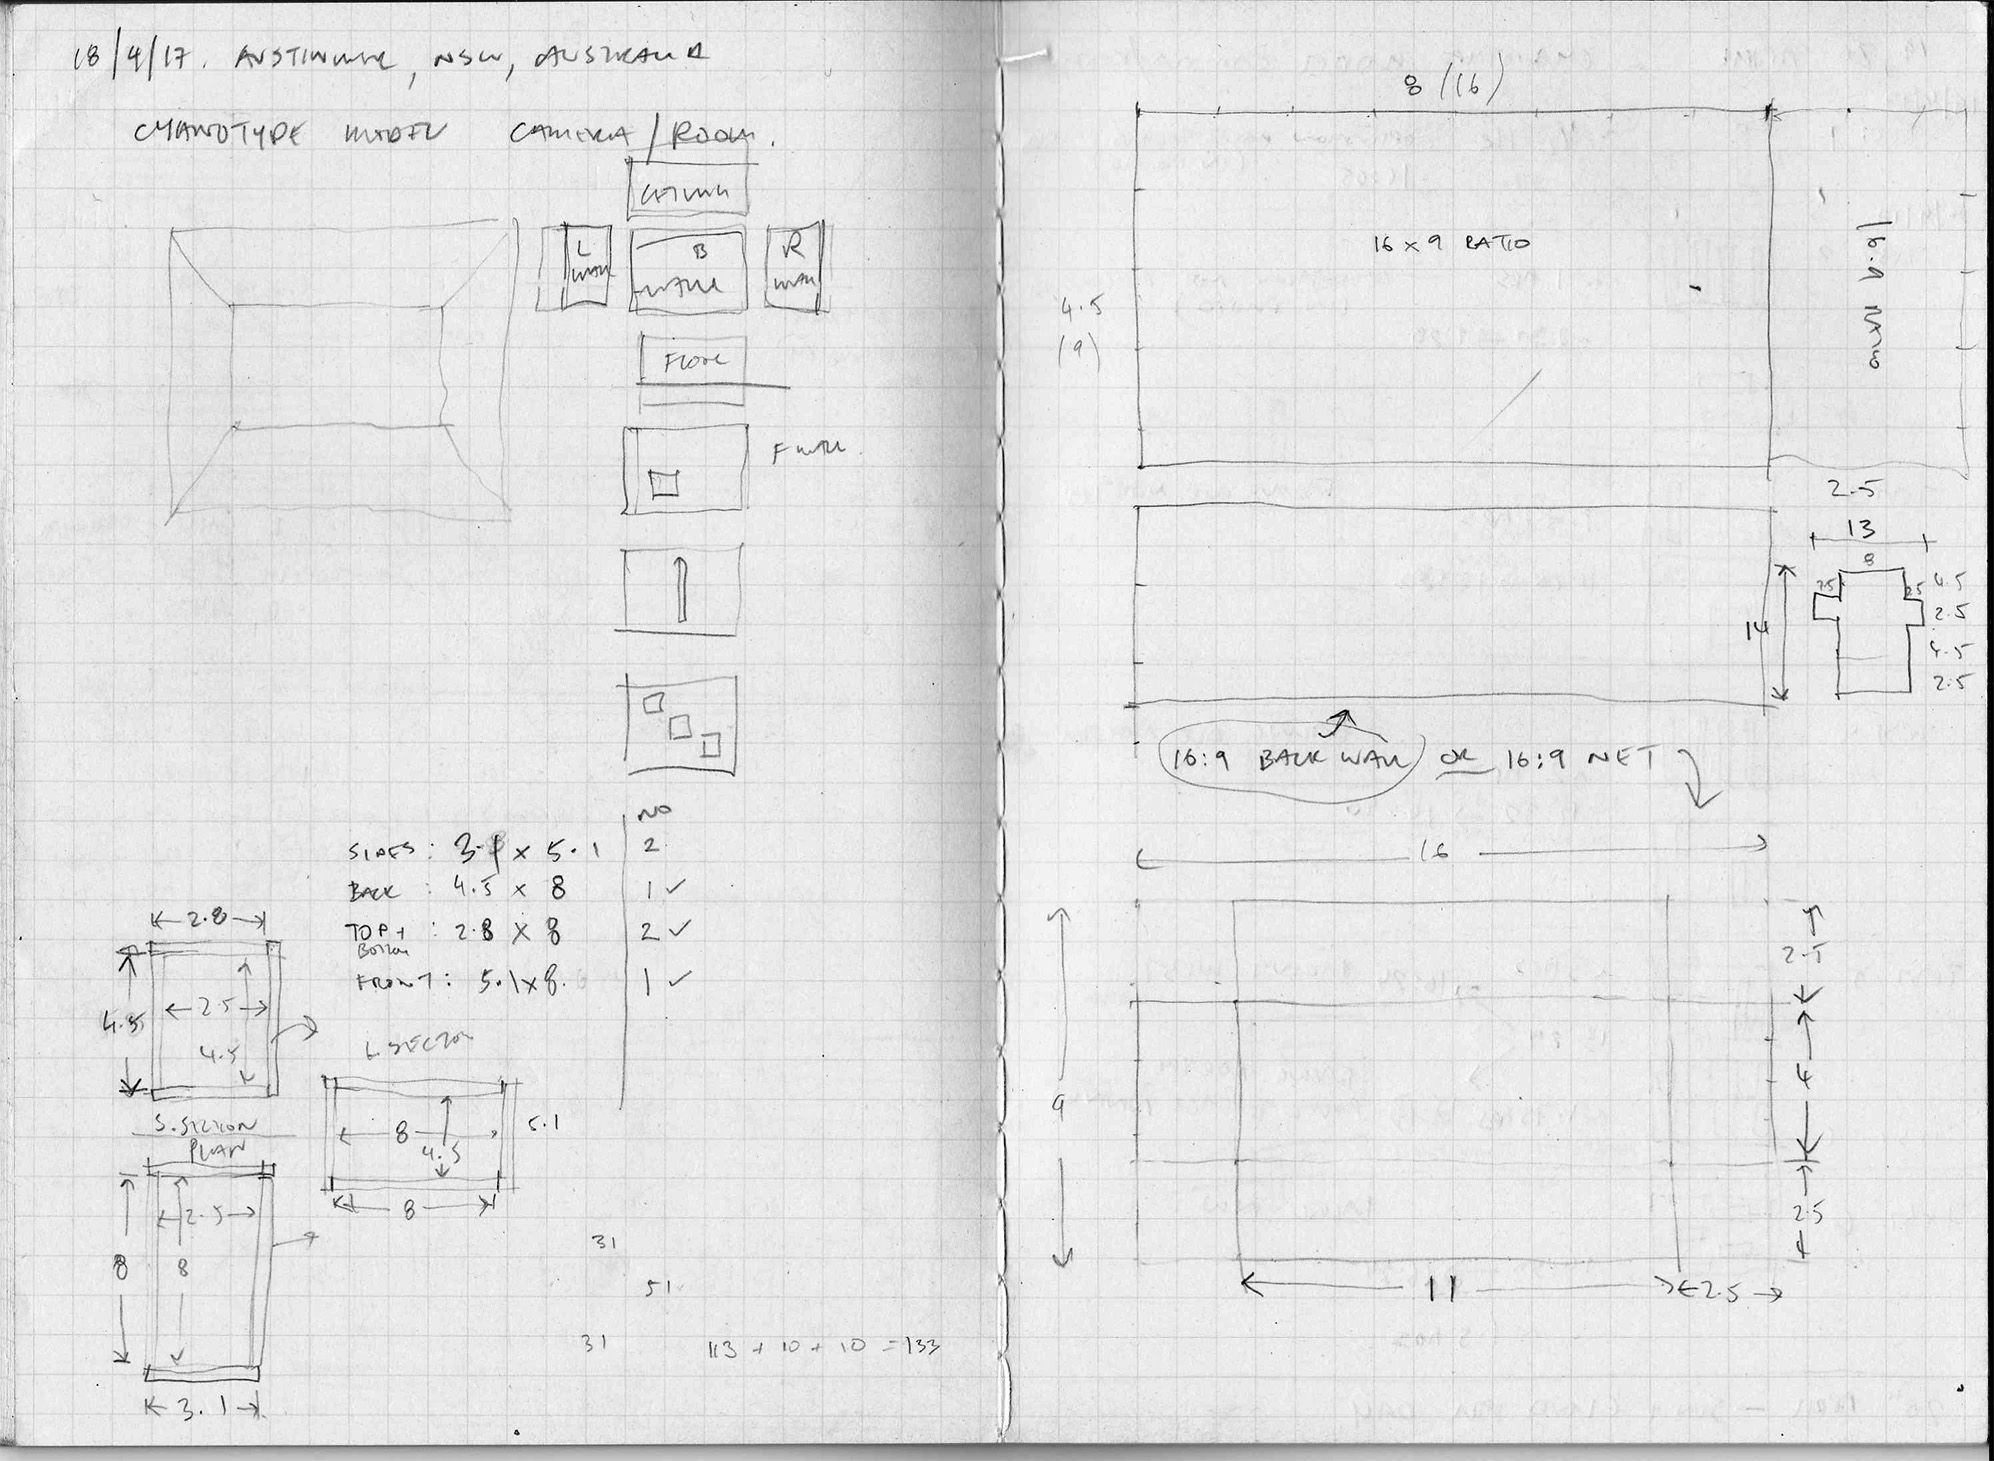 18/4/17. AUSTINMER, NSW, AUSTRALIA
CYANOTYPE MODEL CAMERA/ROOM.
CEILING
L WALL
B WALL
R WALL
FLOOR
F WALL
NO
SIDES: 3.1 x 5.1 2
BACK: 4.5 x 8 1 ✓
TOP + BOTTOM: 2.8 x 8 2 ✓
FRONT: 5.1 x 8. 1 ✓
2.8
2.5
4.5
S. SECTION
L SECTION
8
4.5
5.1
8
PLAN
2.5
8
8
3.1
31
51
31
113 + 10 + 10 = 133
8 (16)
16 x 9 RATIO
4.5
(9)
2.5
13
8
2.5
2.5
4.5
2.5
4.5
2.5
14
16:9 BACK WALL OR 16:9 NET
16
9
2.5
4
2.5
11
2.5